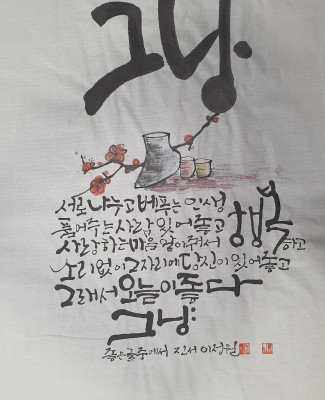 그냥
서로 나누고 베푸는 인생
품어주는 사람 있어 좋고
사랑하는 마음 알아줘서 행복하고
소리없이 그 자리에 당신이 있어 좋고
그래서 오늘이 좋다
그냥
좋은글중에서 진서 이정원